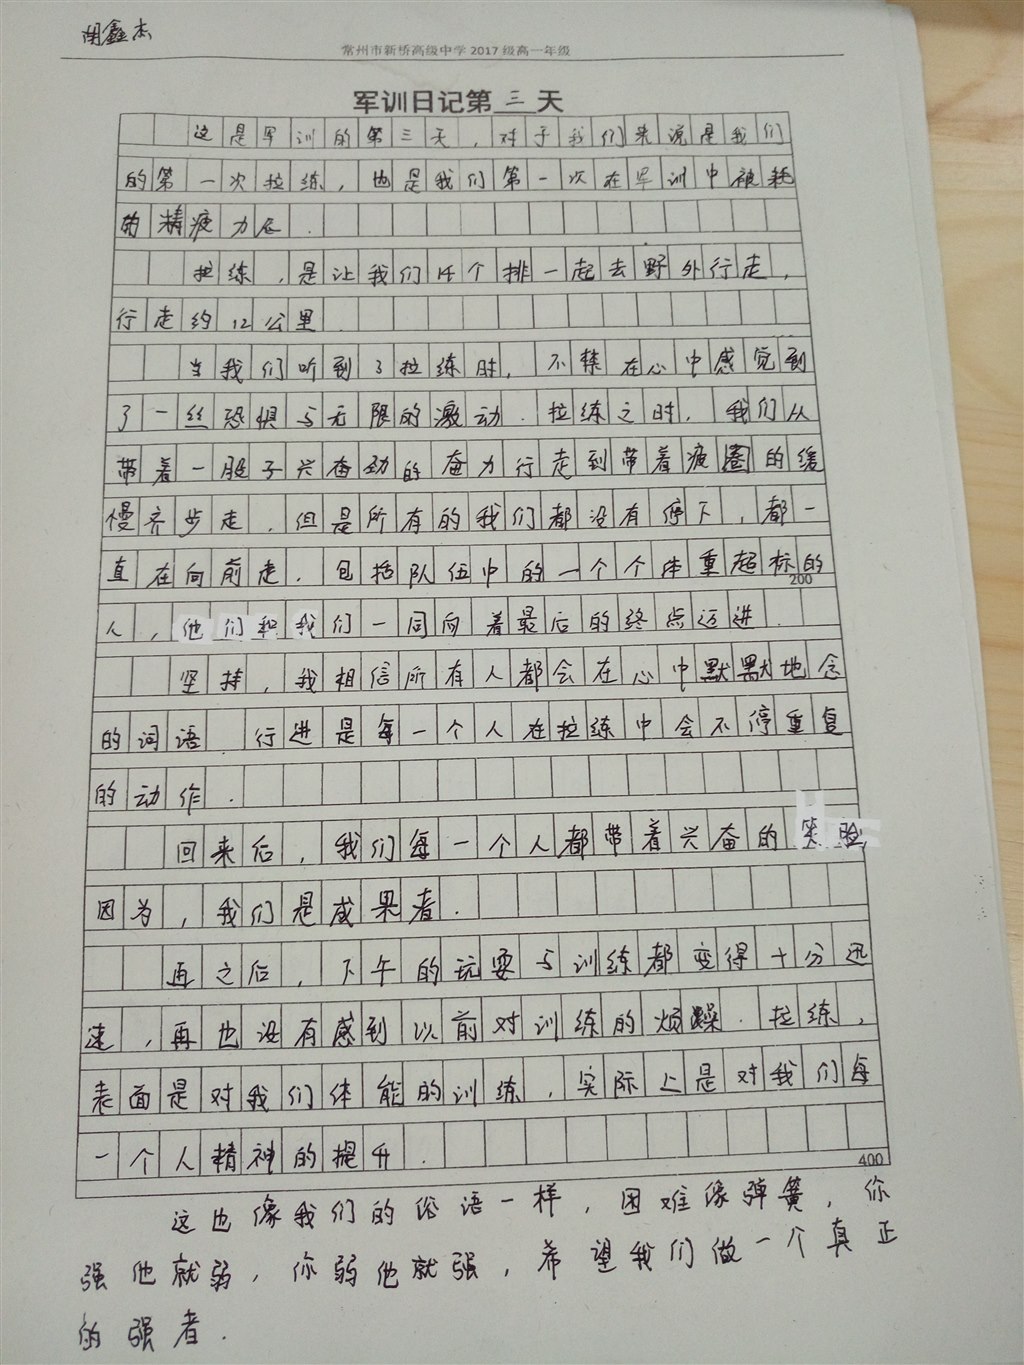 胡鑫杰
常州市新桥高级中学2017级高一年级
军训日记第三天
这是军训的第三天，对于我们来说是我们
的第一次拉练，也是我们第一次在军训中被耗
的精疲力尽.
拉练，是让我们14个排一起去野外行走，
行走约12公里.
当我们听到了拉练时，不禁在心中感觉到
了一丝恐惧与无限的激动.拉练之时，我们从
带着一股子兴奋劲的奋力行走到带着疲圈的缓
慢齐步走，但是所有的我们都没有停下，都一
直在向前走.包括队伍中的一个个体重超标的
200
人，他们和我们一同向着最后的终点迈进.
坚持，我相信所有人都会在心中默默地念
的词语.行进是每一个人在拉练中会不停重复
的动作.
回来后，我们每一个人都带着兴奋的笑脸，
因为，我们是成果者.
再之后，下午的玩耍与训练都变得十分迅
速，再也没有感到以前对训练的烦躁.拉练，
表面是对我们体能的训练，实际上是对我们每
一个人精神的提升.
400
这也像我们的俗语一样，困难像弹簧，你
强他就弱，你弱他就强，希望我们做一个真正
的强者.